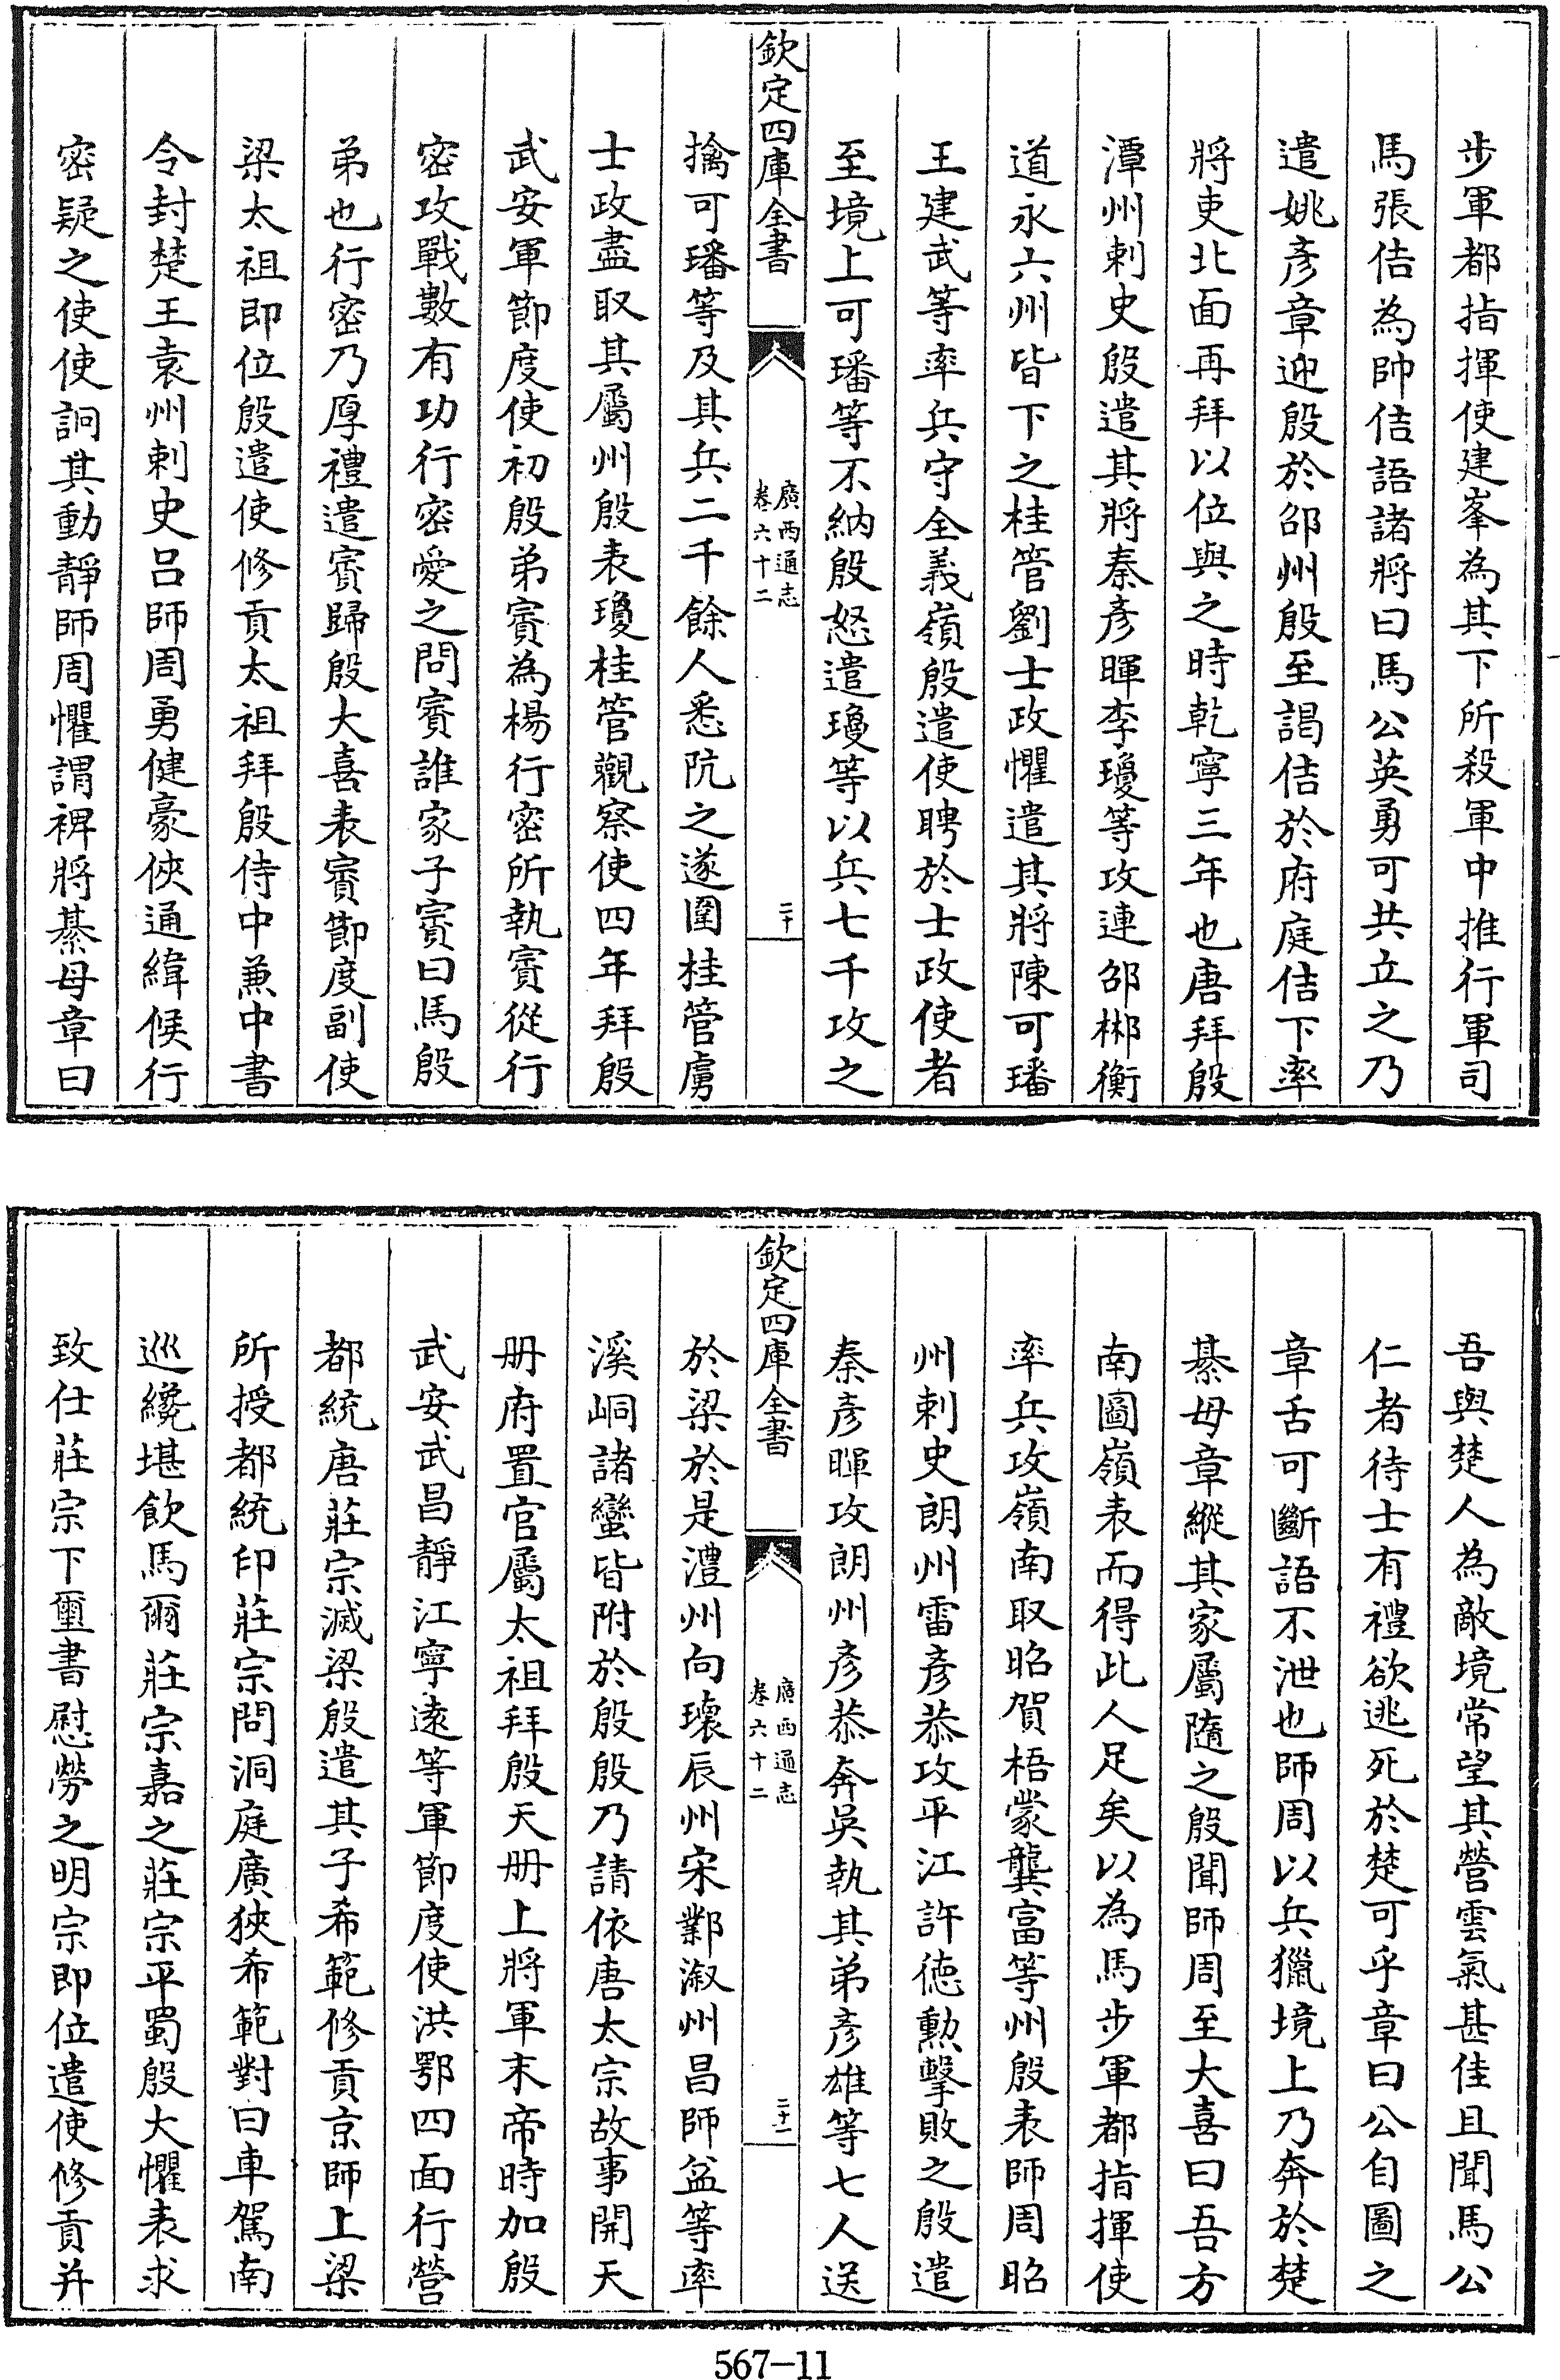 步軍都指揮使建峯為其下所殺軍中推行軍司
馬張佶為帥佶語諸將曰馬公英勇可共立之乃
遣姚彥章迎殷於邵州殷至謁佶於府庭佶下率
將吏北面再拜以位與之時乾寧三年也唐拜殷
潭州刺史殷遣其將秦彥暉李瓊等攻連邵郴衡
道永六州皆下之桂管劉士政懼遣其將陳可璠
王建武等率兵守全義嶺殷遣使聘於士政使者
至境上可璠等不納殷怒遣瓊等以兵七千攻之
欽定四庫全書
廣西通志
卷六十二
二十
擒可璠等及其兵二千餘人悉阬之遂圍桂管虜
士政盡取其屬州殷表瓊桂管觀察使四年拜殷
武安軍節度使初殷弟賓為楊行密所執賓從行
密攻戰數有功行密愛之問賓誰家子賓曰馬殷
弟也行密乃厚禮遣賓歸殷大喜表賓節度副使
梁太祖即位殷遣使修貢太祖拜殷侍中兼中書
令封楚王袁州刺史呂師周勇健豪俠通緯候行
密疑之使使詗其動靜師周懼謂裨將綦母章曰
吾與楚人為敵境常望其營雲氣甚佳且聞馬公
仁者待士有禮欲逃死於楚可乎章曰公自圖之
章舌可斷語不泄也師周以兵獵境上乃奔於楚
綦母章縱其家屬隨之殷聞師周至大喜曰吾方
南圖嶺表而得此人足矣以為馬步軍都指揮使
率兵攻嶺南取昭賀梧蒙龔富等州殷表師周昭
州刺史朗州雷彥恭攻平江許德勳擊敗之殷遣
秦彥暉攻朗州彥恭奔吳執其弟彥雄等七人送
欽定四庫全書
廣西通志
卷六十二
二十一
於梁於是澧州向瓌辰州宋鄴溆州昌師益等率
溪峒諸蠻皆附於殷殷乃請依唐太宗故事開天
册府置官屬太祖拜殷天册上將軍末帝時加殷
武安武昌靜江寧遠等軍節度使洪鄂四面行營
都統唐莊宗滅梁殷遣其子希範修貢京師上梁
所授都統印莊宗問洞庭廣狹希範對曰車駕南
巡纔堪飲馬爾莊宗嘉之莊宗平蜀殷大懼表求
致仕莊宗下璽書慰勞之明宗即位遣使修貢并
567-11